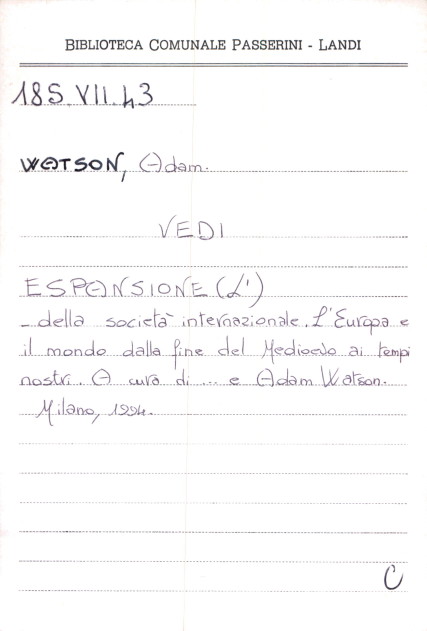 BIBLIOTECA COMUNALE PASSERINI - LANDI
185.VII.43
WATSON, Adam.
VEDI
ESPANSIONE (L')
- della società internazionale. L'Europa e
il mondo dalla fine del Medioevo ai tempi
nostri. A cura di ... e Adam Watson.
Milano, 1994.
C